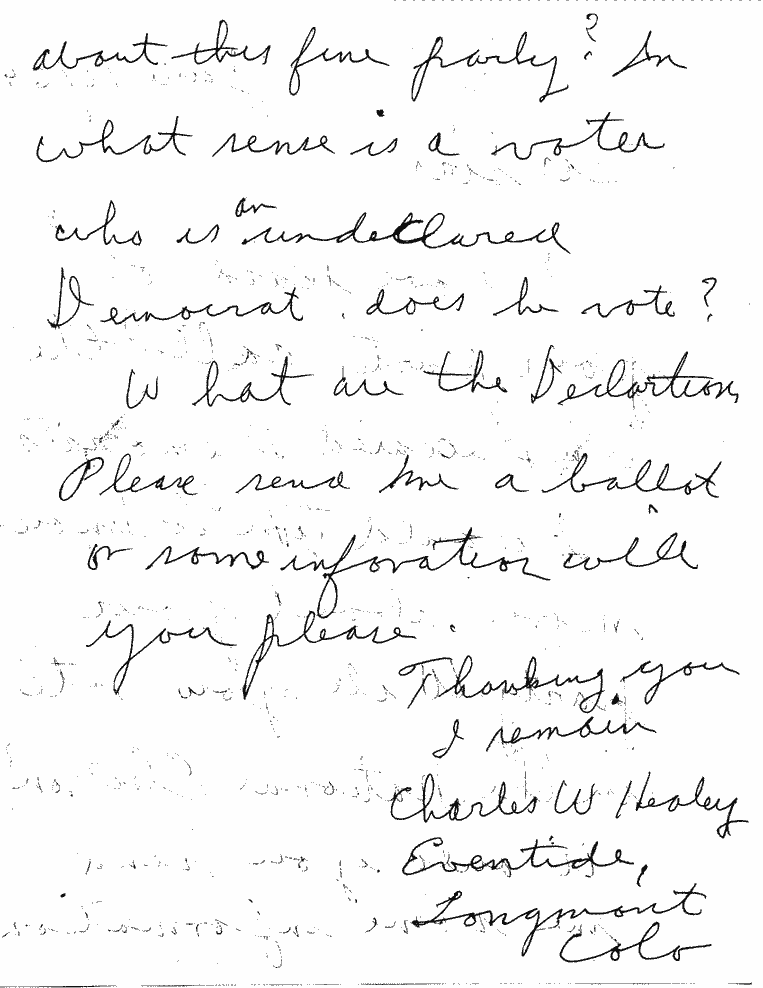 about this fine party? In
what sense is a voter
who is an undeclared
Democrat. does he vote?
What are the Declartions
Please send me a ballot
or some inforvation will
you please.
Thanking you
I remain
Charles W Healey
Eventide,
Longmont
Colo